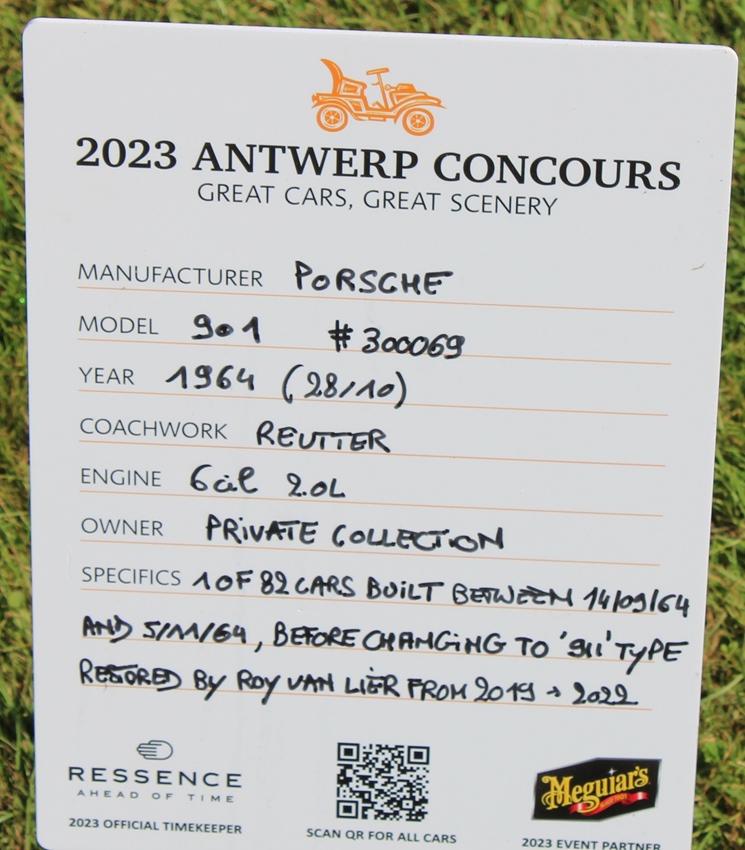 2023 ANTWERP CONCOURS
GREAT CARS, GREAT SCENERY
MANUFACTURER PORSCHE
MODEL 901 #300069
YEAR 1964 (28/10)
COACHWORK REUTTER
ENGINE 6 cil 2.0L
OWNER PRIVATE COLLECTION
SPECIFICS 1 OF 82 CARS BUILT BETWEEN 14/09/64
AND 5/11/64, BEFORE CHANGING TO '911' TYPE
RESTORED BY ROY VAN LIER FROM 2019 → 2022
RESSENCE
AHEAD OF TIME
2023 OFFICIAL TIMEKEEPER
SCAN QR FOR ALL CARS
Meguiar's
2023 EVENT PARTNER